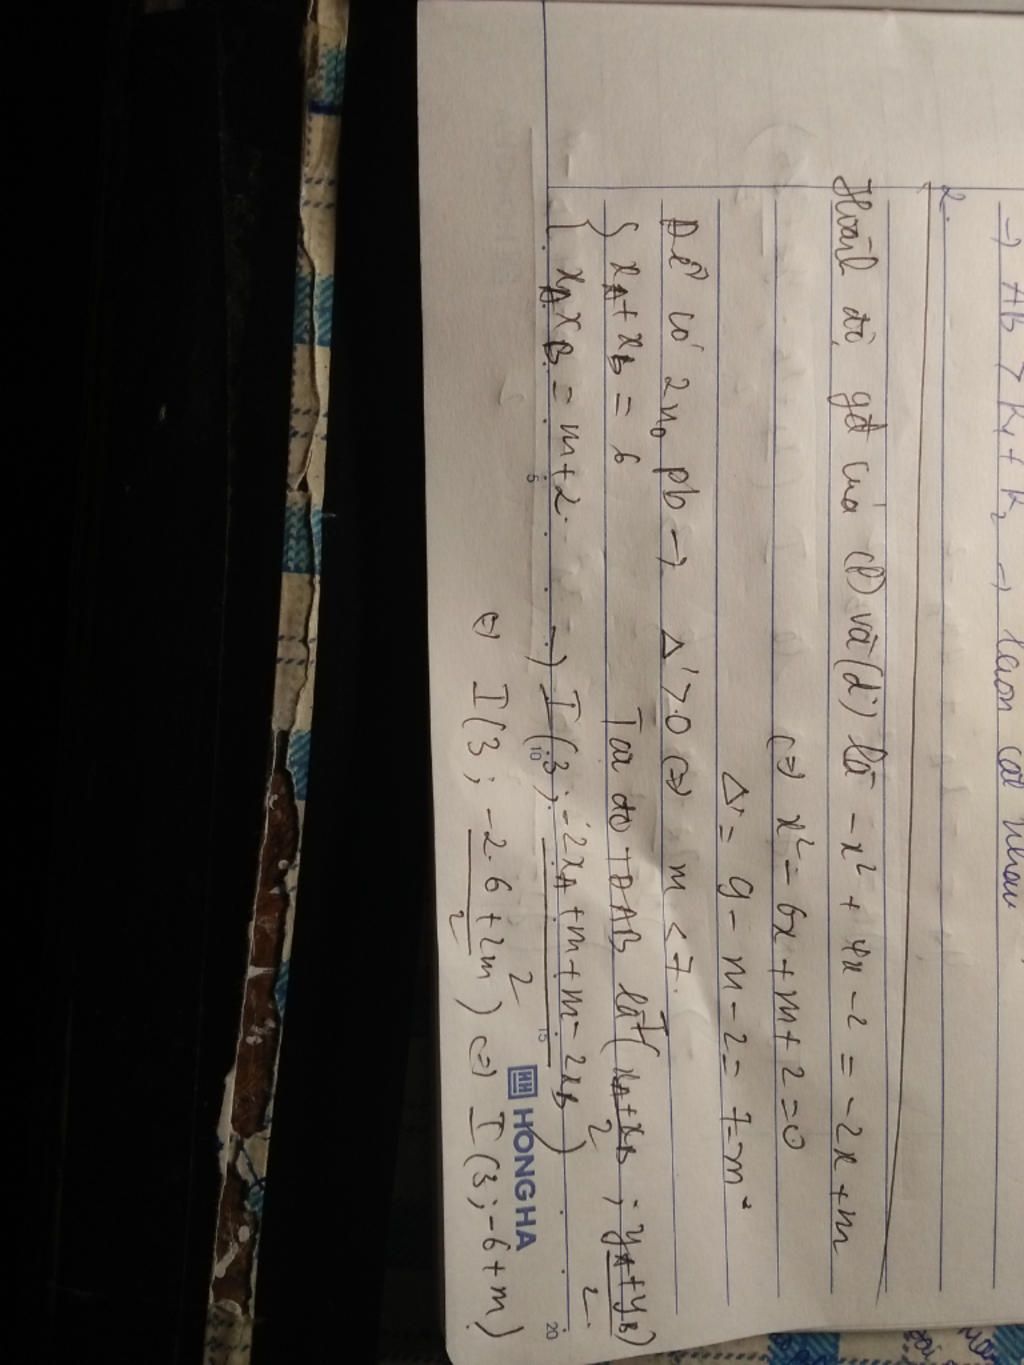 → AB > R₁ + R₂ → luôn cắt nhau
2.
Hoành độ gđ của (P) và (d) là -x² + 4x - 2 = -2x + m
(=) x² - 6x + m + 2 = 0
Δ' = 9 - m - 2 = 7 - m
Để có 2n₀ pb → Δ' > 0 (=) m < 7.
{ x_A + x_B = 6
x_A x_B = m + 2.
Toạ độ TĐ AB là I( (x_A + x_B)/2 ; (y_A + y_B)/2 )
→ I (3; (-2x_A + m + m - 2x_B)/2 )
(=) I (3; (-2.6 + 2m)/2 ) (=) I (3; -6 + m)
HONG HA
5 10 15 20